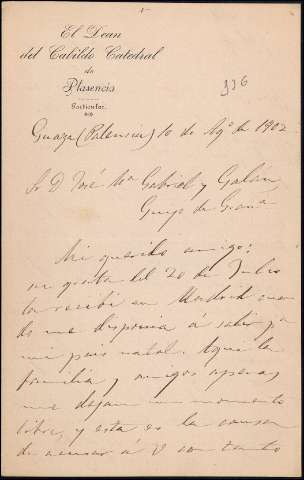 El Dean
del Cabildo Catedral
de
Plasencia
Particular.
336
Guaza (Palencia) 10 de Agº de 1902
Sr D José Mª Gabriel y Galán
Guijo de Grana
Mi querido amigo:
su grata del 20 de Julio
la recibí en Madrid cuan
do me disponia á salir pª
mi pais natal. Aqui la
familia y amigos apenas
me dejan un momento
libre, y esta es la causa
de acusar á V con tanto